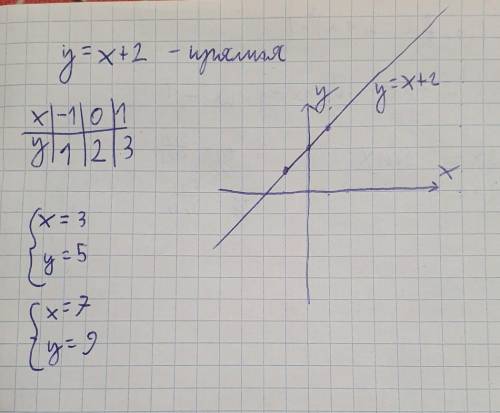 y = x+2 - прямая
x | -1 | 0 | 1
y | 1 | 2 | 3
{ x = 3
y = 5
{ x = 7
y = 9
y
y = x+2
x